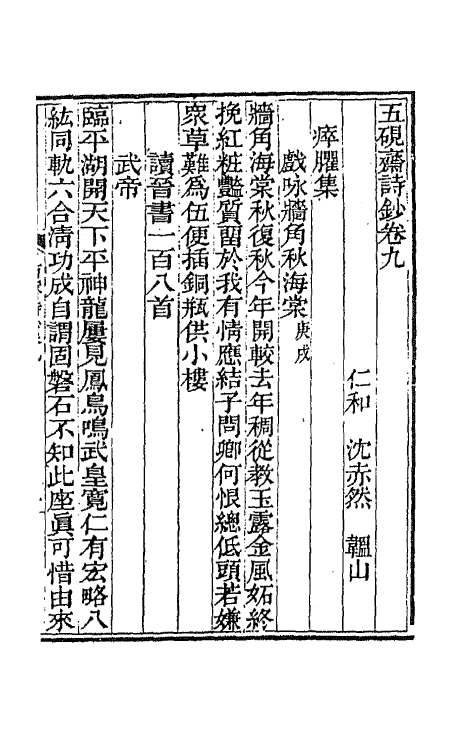 五硯齋詩鈔卷九
仁和　沈赤然　韞山
瘁臞集
戲咏牆角秋海棠庚戌
牆角海棠秋復秋今年開較去年稠從教玉露金風妬終
挽紅粧豔質畱於我有情應結子問卿何恨總低頭若嫌
衆草難為伍便插銅瓶供小樓
讀晉書一百八首
武帝
臨平湖開天下平神龍屢見鳳鳥鳴武皇寬仁有宏略八
紘同軌六合清功成自謂固磐石不知此座眞可惜由來